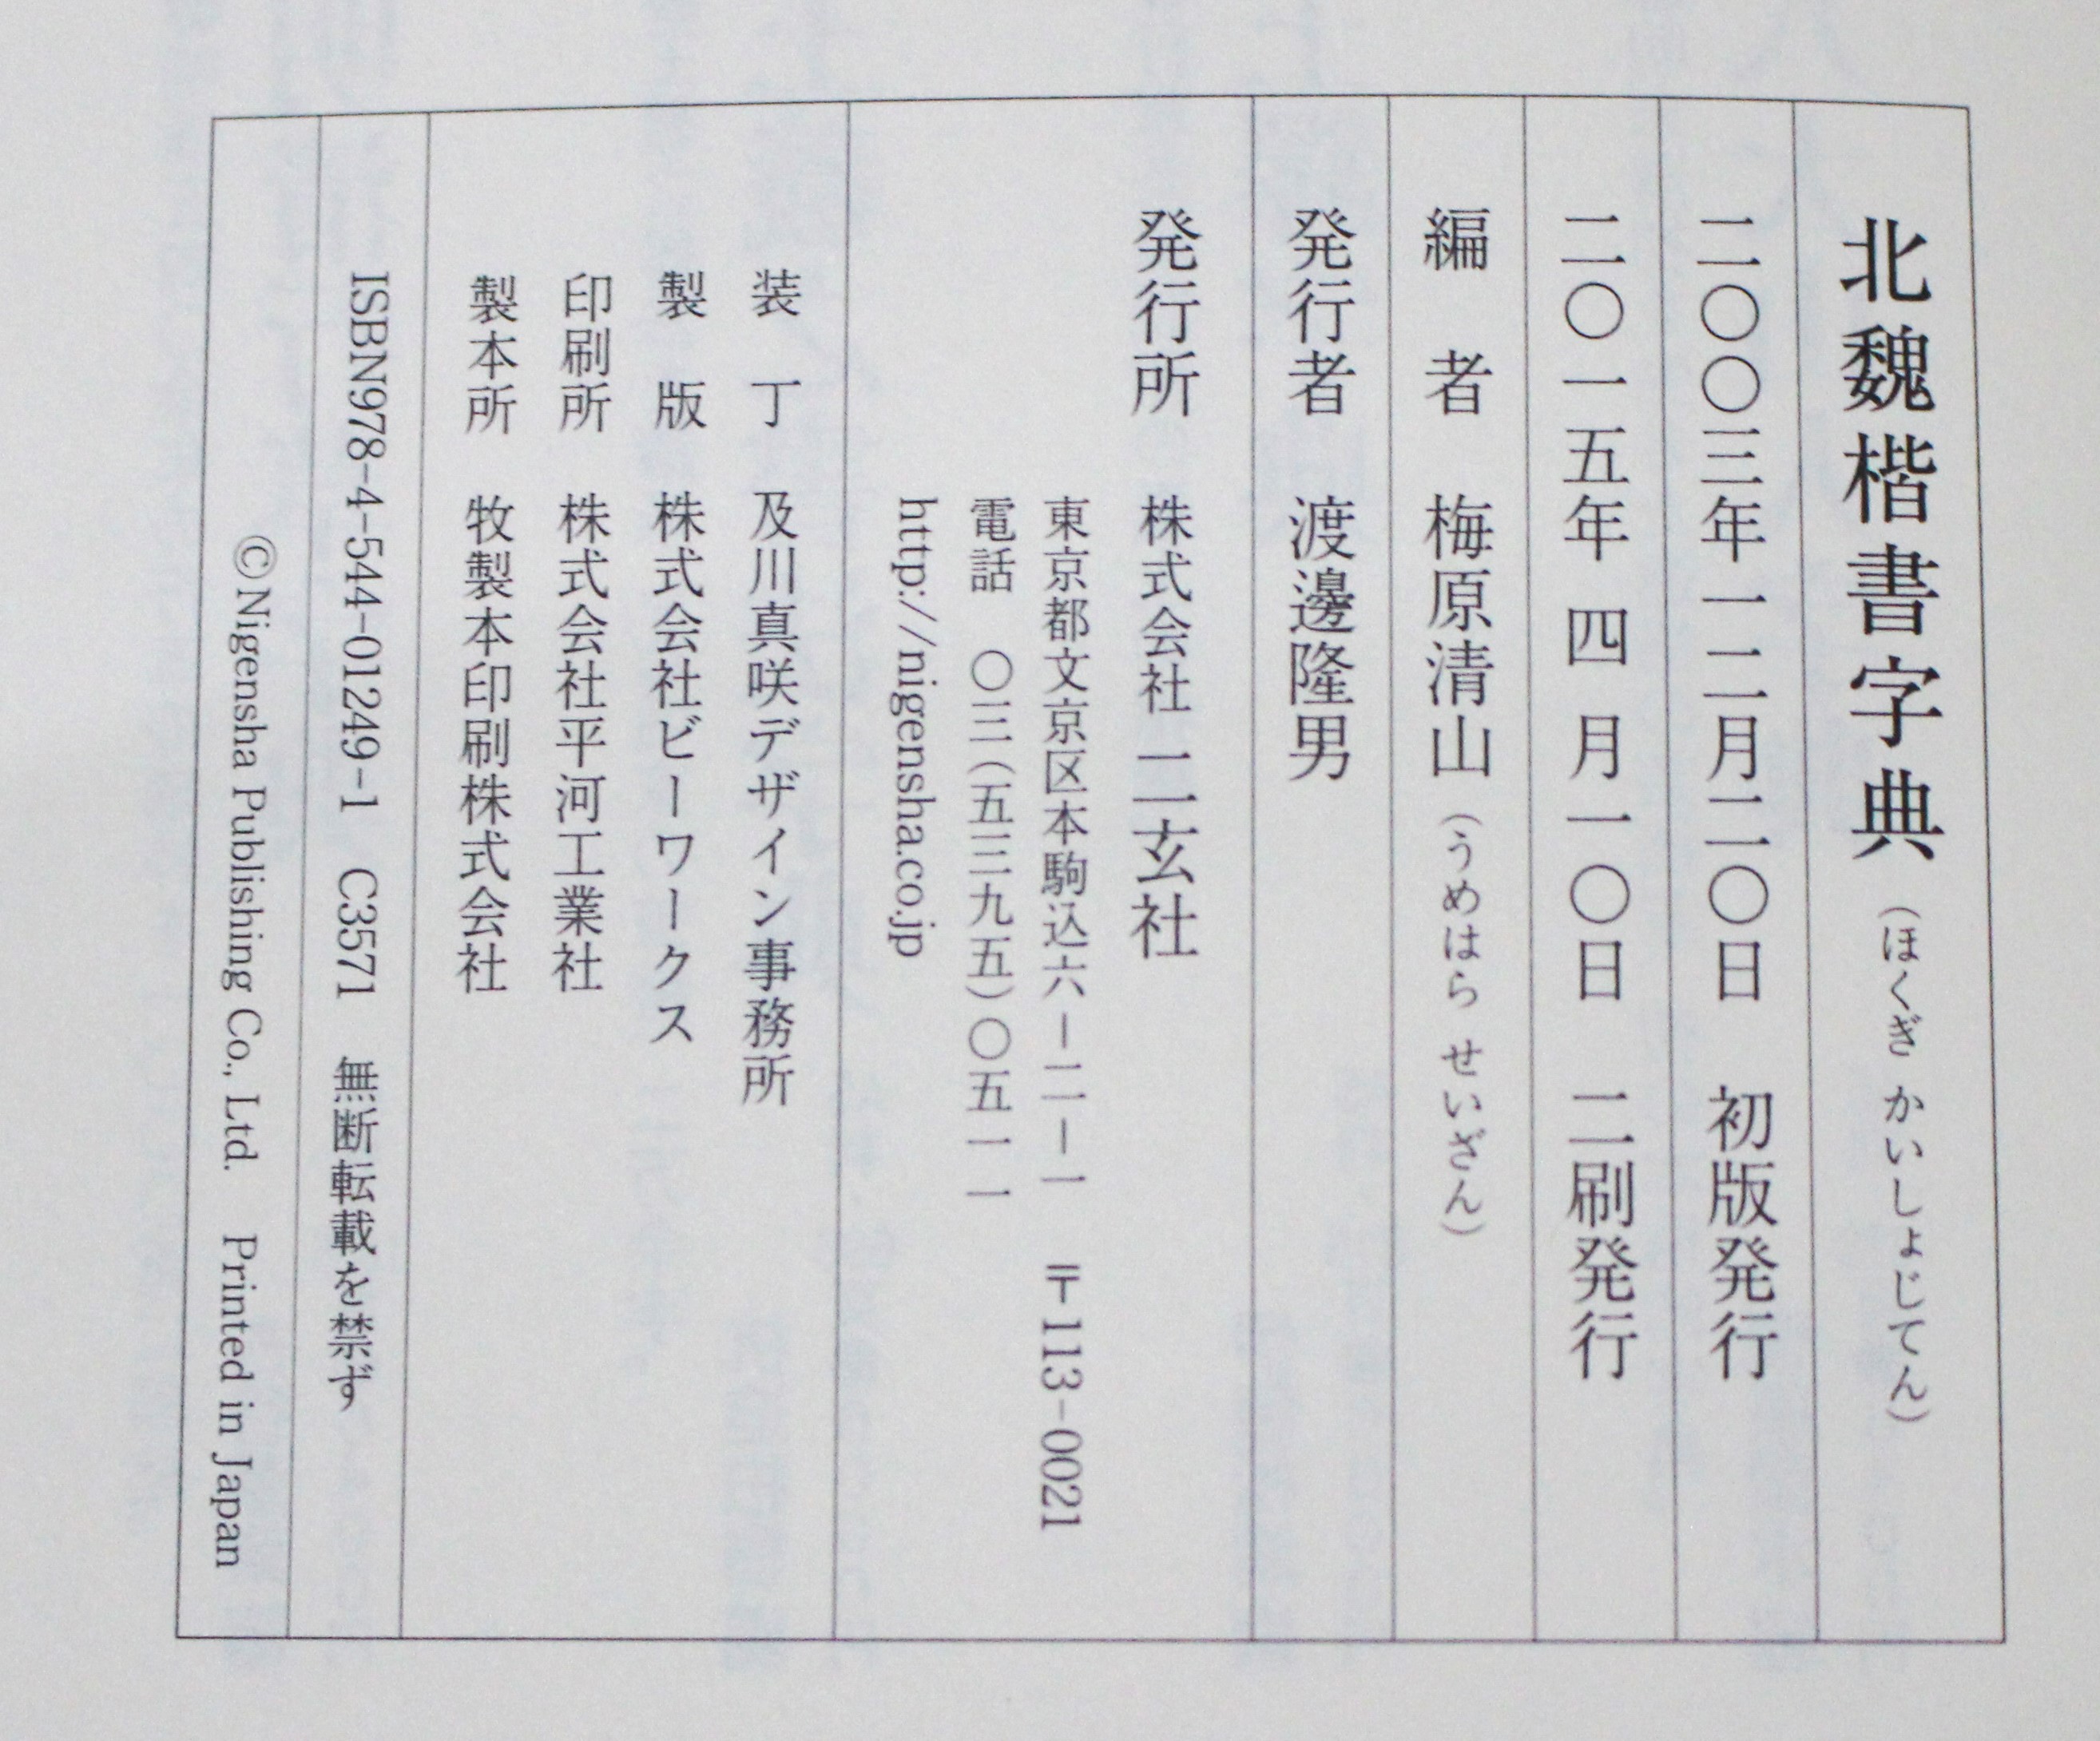 北魏楷書字典（ほくぎ かいしょじてん）
二〇〇三年一二月二〇日　初版発行
二〇一五年 四 月一〇日　二刷発行
編　者　梅原清山（うめはら せいざん）
発行者　渡邊隆男
発行所　株式会社 二玄社
東京都文京区本駒込六－二－一　〒113-0021
電話　〇三（五三九五）〇五一一
http://nigensha.co.jp
装　丁　及川真咲デザイン事務所
製　版　株式会社ビーワークス
印刷所　株式会社平河工業社
製本所　牧製本印刷株式会社
ISBN978-4-544-01249-1　C3571　無断転載を禁ず
©Nigensha Publishing Co., Ltd.　Printed in Japan